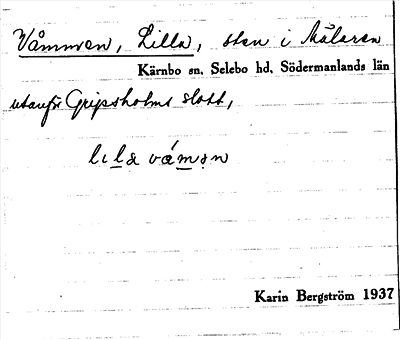 Våmmen, Lilla, sten i Mälaren
Kärnbo sn, Selebo hd, Södermanlands län
utanför Gripsholms slott,
lıla vámən
Karin Bergström 1937